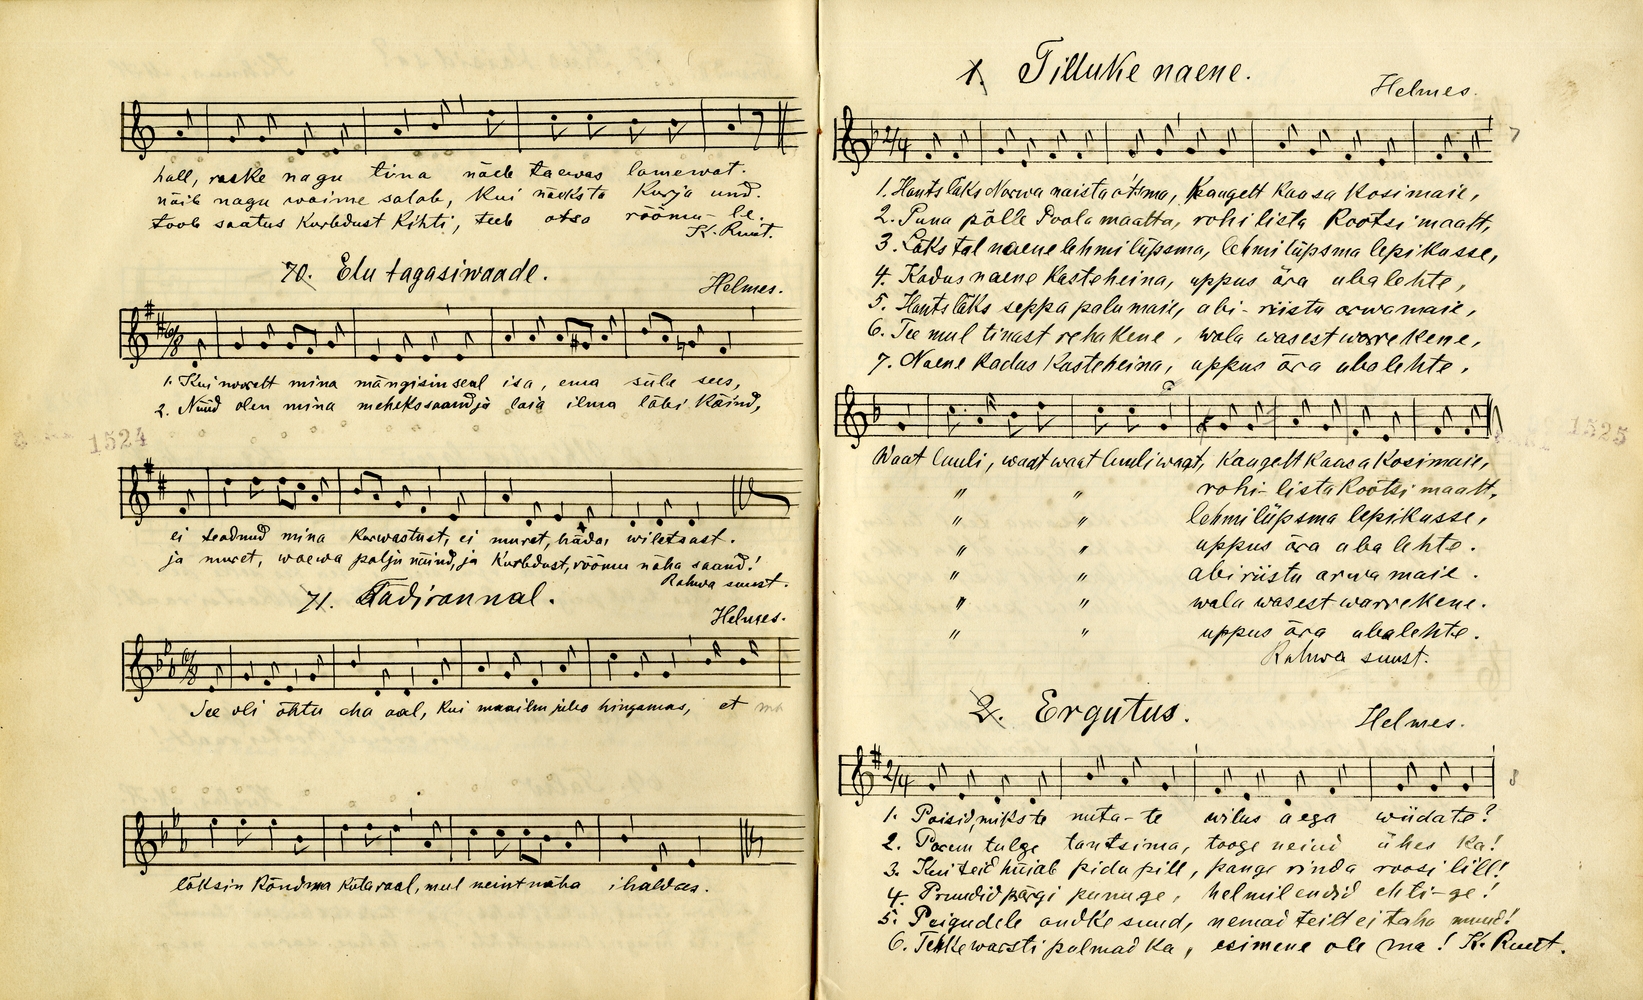 hall, raske nagu tina näeb taewas lamewat.
näib nagu waime salab, kui näeksta kurja und.
toob saatus kurbdust kihti, teeb otsa rõõmu-le.
K. Ruut.
70. Elu tagasiwaade.
Helmes.
6/8
1. Kui noorelt mina mängisin seal isa, ema süle sees,
2. Nüüd olen mina meheks saand ja laia ilma läbi käind,
1524
ei teadnud mina kurwastust, ei muret, häda, wiletsust.
ja muret, waewa palju näind, ja kurbdust, rõõmu näha saand!
Rahwa suust.
71. Kadirannal.
Helmes.
6/8
See oli õhtu eha aal, kui maailm juba hingamas, et ma
läksin kõndma kotaraal, mul neint näha ihaldas.
1. Tilluke naene.
Helmes.
2/4
7
1. Hants läks Norwa naista otsma, kaugelt kaasa kosimaie,
2. Puna põlle Poola maalta, rohilista Rootsi maalt,
3. Läks tal naene lehmi lüpsma, lehmi lüpsma lepikusse,
4. Kadus naene kasteheina, uppus ära ubalehte,
5. Hants läks seppa palumaie, abi-riista arwamaie,
6. Tee mul tinast rehakene, wala wasest warrekene,
7. Naene kadus kasteheina, uppus ära ubalehte,
Waat luuli, waat waat luuli waat, kaugelt kaasa kosimaie,
1525
" " rohi-lista Rootsi maalt,
" " lehmi lüpsma lepikusse,
" " uppus ära uba lehte.
" " abiriista arwa maie.
" " wala wasest warrekene.
" " uppus ära ubalehte.
Rahwa suust.
2. Ergutus.
Helmes.
2/4
8
1. Poisid, miks te nuta-te wilus aega wiidate?
2. Parem tulge tantsima, tooge neiud ühes ka!
3. Kui teid hüiab pidu pill, pange rinda roosi lill!
4. Pruudid pärgi punuge, helmil endid ehti-ge!
5. Peigudele andke suud, nemad teilt ei taha muud!
6. Tehke warsti pulmad ka, esimene ole ma! K. Ruut.